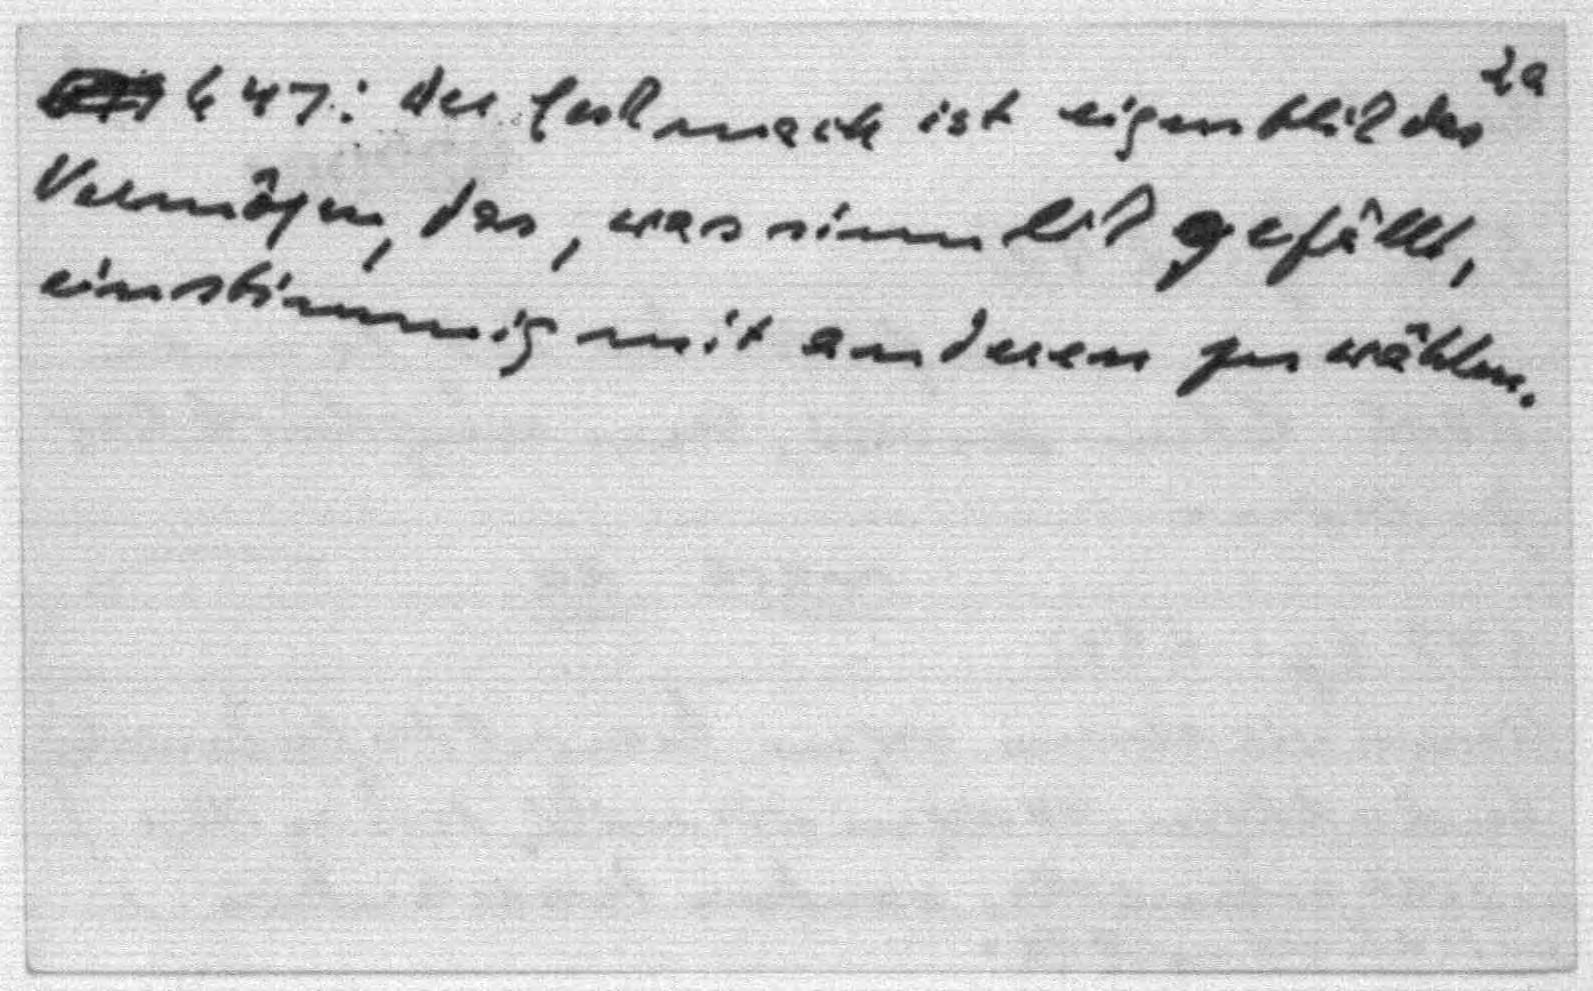 2a
647.: der Geschmack ist eigentlich das
Vermögen, das, was sinnlich gefällt,
einstimmig mit anderen zu wählen.